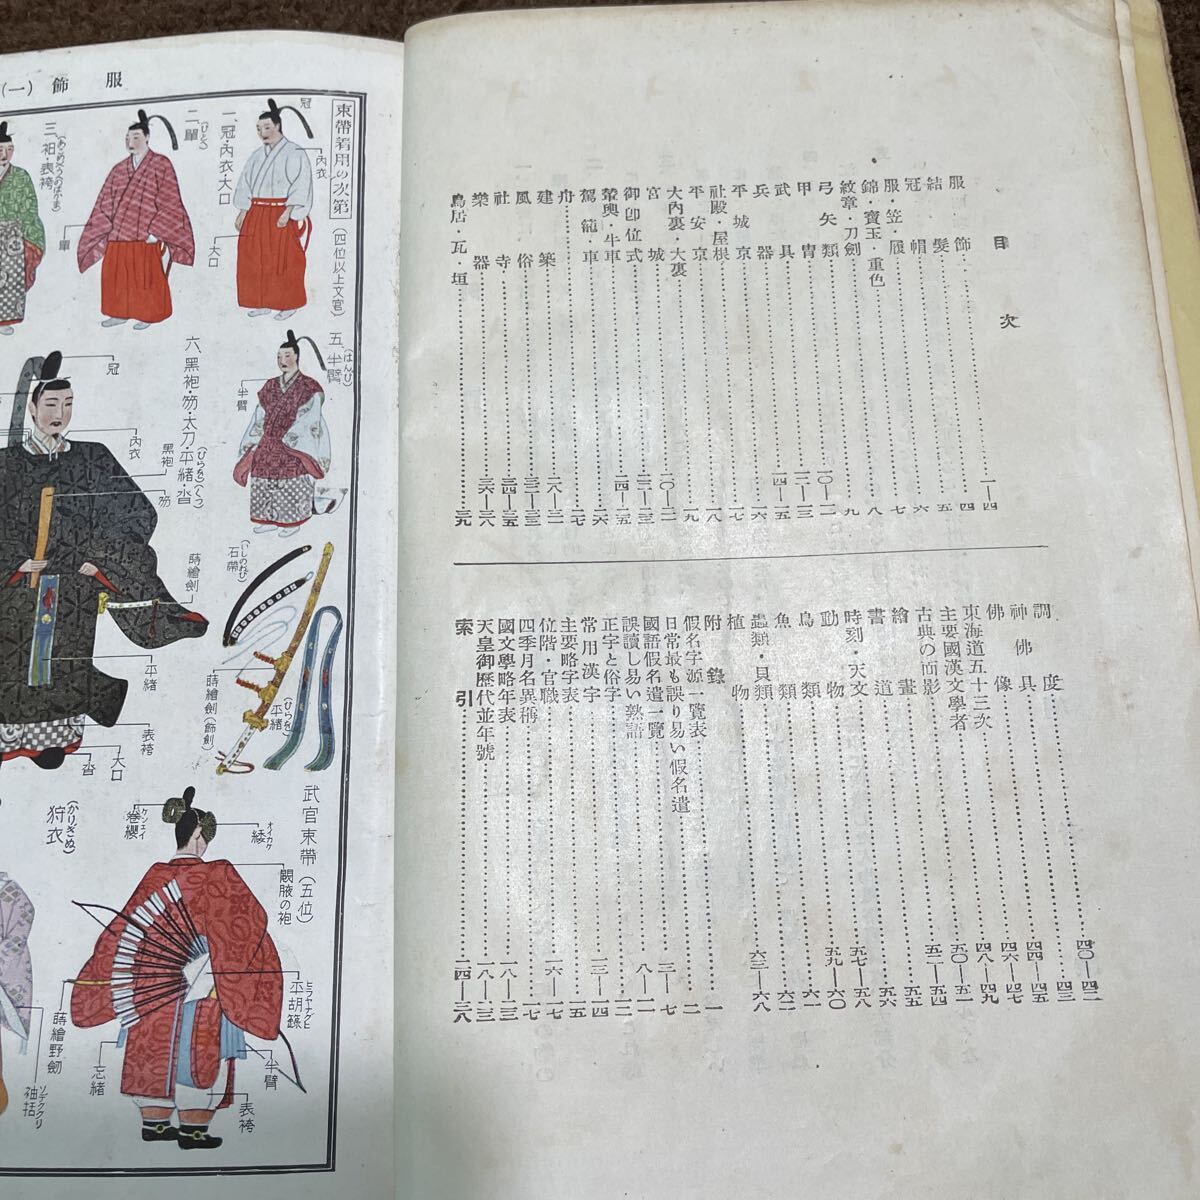 目次
服飾……一—四
結髮……四
冠帽……五
服・笠・履……六
錦・寶玉・重色……七
紋章・刀劍……八
弓矢類……九
甲冑……一〇—一一
武具……一二—一三
兵器……一四—一五
平城京……一六
平安京……一七
社殿・屋根……一八
大內裏・大裏……一九
宮城……二〇—二一
御卽位式……二二—二三
輦輿・牛車……二四—二五
駕籠・車……二六
舟……二七
建築……二八—三一
風俗……三二—三三
社寺……三四—三五
樂器……三六—三八
鳥居・瓦・垣……三九
調度……四〇—四二
神佛具……四三
佛像……四四—四五
東海道五十三次……四六—四七
主要國漢文學者……四八—四九
古典の面影……五〇—五一
繪畫……五二—五四
書道……五五
時刻・天文……五六
動物……五七—五八
鳥類……五九—六〇
魚類……六一
蟲類・貝類……六二
植物……六三—六八
附錄
假名字源一覽表……一
日常最も誤り易い假名遣……二
國語假名遣一覽……三—七
誤讀し易い熟語……八—一一
正字と俗字……一二
常用漢字……一三—一四
主要略字表……一五
位階・官職……一六—一七
四季月名異稱……一七
國文學略年表……一八—二三
天皇御歷代並年號……一八—二三
索引……二四—三八
服飾(一)
束帶着用の次第
(四位以上文官)
一、冠・內衣・大口
冠
內衣
大口
二、單
(ひとへ)
單
三、衵・表袴
(あこめ)(うへのはかま)
五、半臂
(はんぴ)
半臂
六、黑袍・笏・太刀・平緒・沓
(ひらを)(くつ)
冠
內衣
黑袍
笏
蒔繪劍
平緒
表袴
大口
沓
石帶
(いしのおび)
蒔繪劍(飾劍)
平緒
(ひらを)
武官束帶(五位)
卷纓
ケンエイ
緌
オイカケ
闕腋の袍
平胡簶
ヒラヤナグヒ
半臂
表袴
蒔繪野劒
忘緒
狩衣
(かりぎぬ)
袖括
ソデククリ